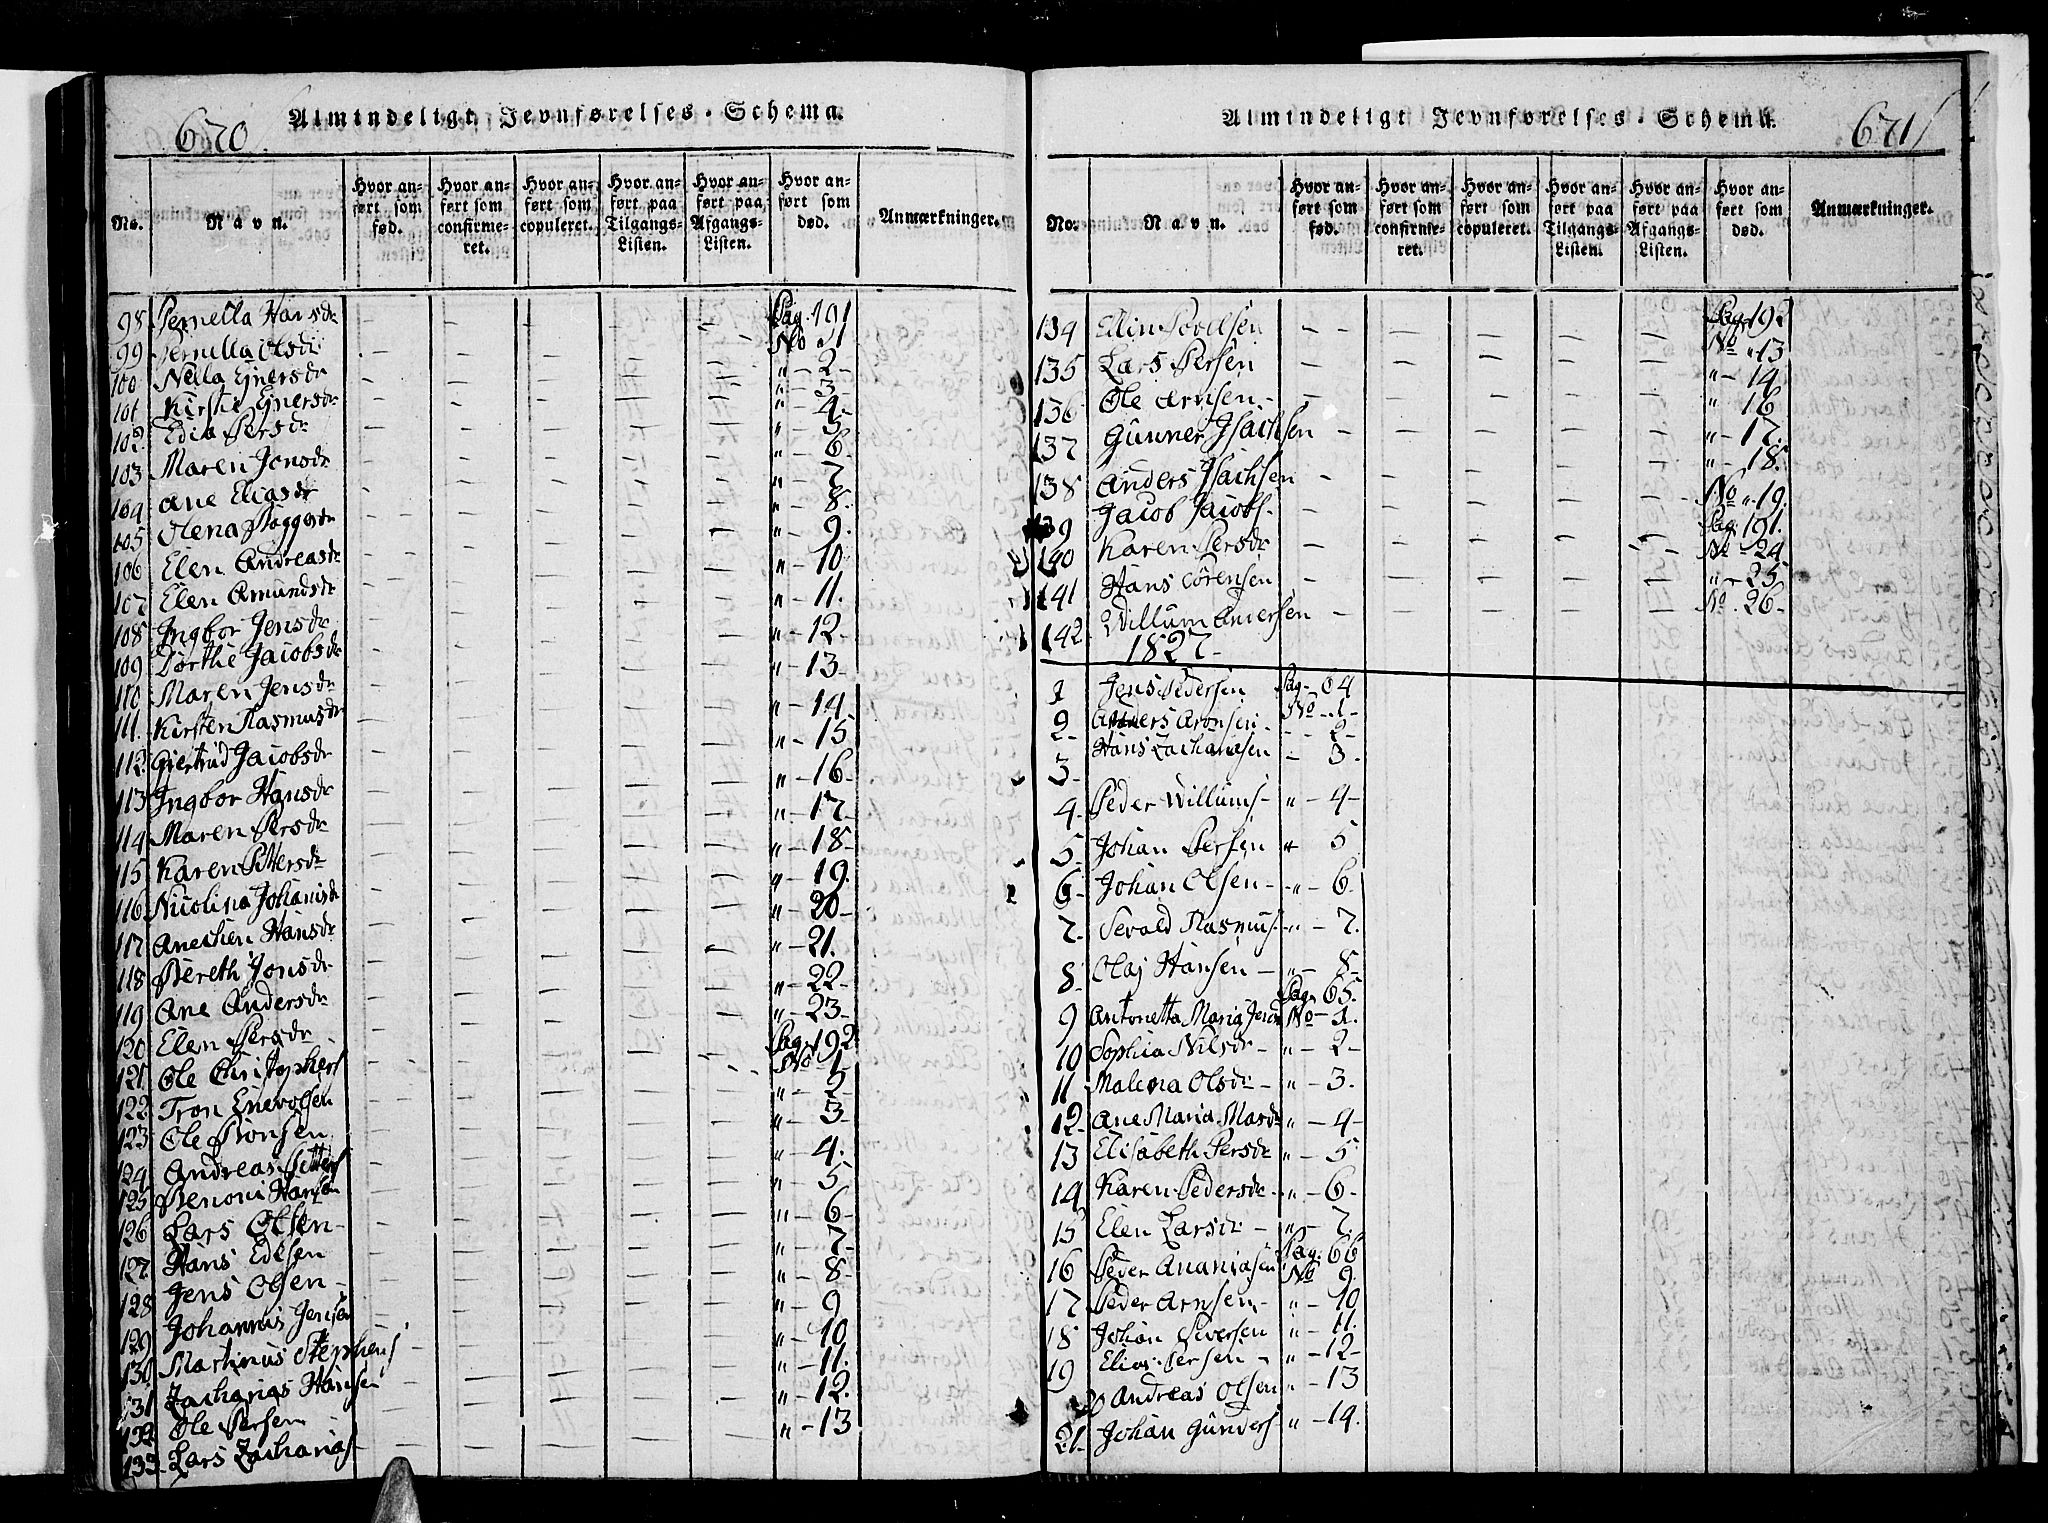 670.
Almindeligt Jevnførelses-Schema.
No. Navn. Hvor anført som fød. Hvor anført som confirmeret. Hvor anført som copuleret. Hvor anført paa Tilgangs-Listen. Hvor anført paa Afgangs-Listen. Hvor anført som død. Anmærkninger.
98 Pernella Hansdr Pag. 191
99 Pernilla Olsdr No 1
100 Nella Ejnersdr " - 2 -
101 Kirstie Ejnersdr " - 3 -
102 Edia Persdr " - 4 -
103 Maren Jonsdr " - 5 -
104 Ane Eliasdr " - 6
105 Olena " - 7
106 Elen Andreasdr " - 8.
107 Elen Amundsdr " - 9.
108 Ingbor Jensdr " - 10
109 Dorthe Jacobsdr " - 11.
110 Maren Jensdr " - 12 -
111. Kirsten Rasmusdr " - 13 -
112 Giertrud Jacobsdr " - 14
113 Ingbor Hansdr " - 15
114 Maren Persdr " - 16 -
115 Karen Pettersdr " - 17 -
116 Nicolina Johanisdr " - 18 -
117 Anechen Hansdr " - 19.
118 Bereth Jonsdr " - 20 -
119 Ane Andersdr " - 21.
120 Elen Persdr " - 22 -
" - 23 -
121 Ole Christophers Pag. 192
122 Tron Enevolsen No 1
123 Ole " - 2
124 Andreas Petters " - 3
125 Benoni Hansen " - 4.
126 Lars Olsen - " - 5
127 Hans Edisen " - 6 -
128 Jens Olsen - " - 7 -
129 Johannis Jensen " - 8 -
130 Martinus Stephens " - 9
131 Zacharias Hansen " - 10
132 Ole Persen " - 11.
133 Lars Zacharias " - 12.
" - 13
Almindeligt Jevnførelses-Schema.
671
No. Navn. Hvor anført som fød. Hvor anført som confirmeret. Hvor anført som copuleret. Hvor anført paa Tilgangs-Listen. Hvor anført paa Afgangs-Listen. Hvor anført som død. Anmærkninger.
134 Pag. 192
No " 13
135 Lars Persen " - 14
136 Ole Arnsen - " 16
137 Gunner Isachsen " - 17.
138 Anders Isachsen " - 18.
139 Jacob Jacobs. No " 19.
140 Karen Persdr Pag. 191.
No - 24
141 Hans Sørensen " - 25
142 Willum Anersen No . 26 -
1827 -
1 Jens Pedersen Pag. 64
No - 1 -
2 Anders Aronsen - - 2 -
3 Hans Zachariesen - 3.
4 Peder Willums - " - 4 -
5 Johan Persen " 5
6 Johan Olsen - " - 6.
7 Sevald Rasmus. " - 7.
8 Olaj Hansen - " - 8 -
Pag. 65.
9 Antonetta Maria Jens No - 1.
10 Sophia Nilsdr - " - 2 -
11 Malena Olsdr - " - 3.
12 Ane Maria Masdr " - 4 -
13 Elisabeth Persdr " - 5
14 Karen Pedersdr - " - 6 -
15 Elen Larsdr - " - 7.
Pag. 66
16 Peder Ananiasen No 9.
17 Peder Arnsen - " - 10
18 Johan Siversen " - 11.
19 Elias Persen - " - 12 -
Andreas Olsen " - 13
21 Johan Gunders " - 14.